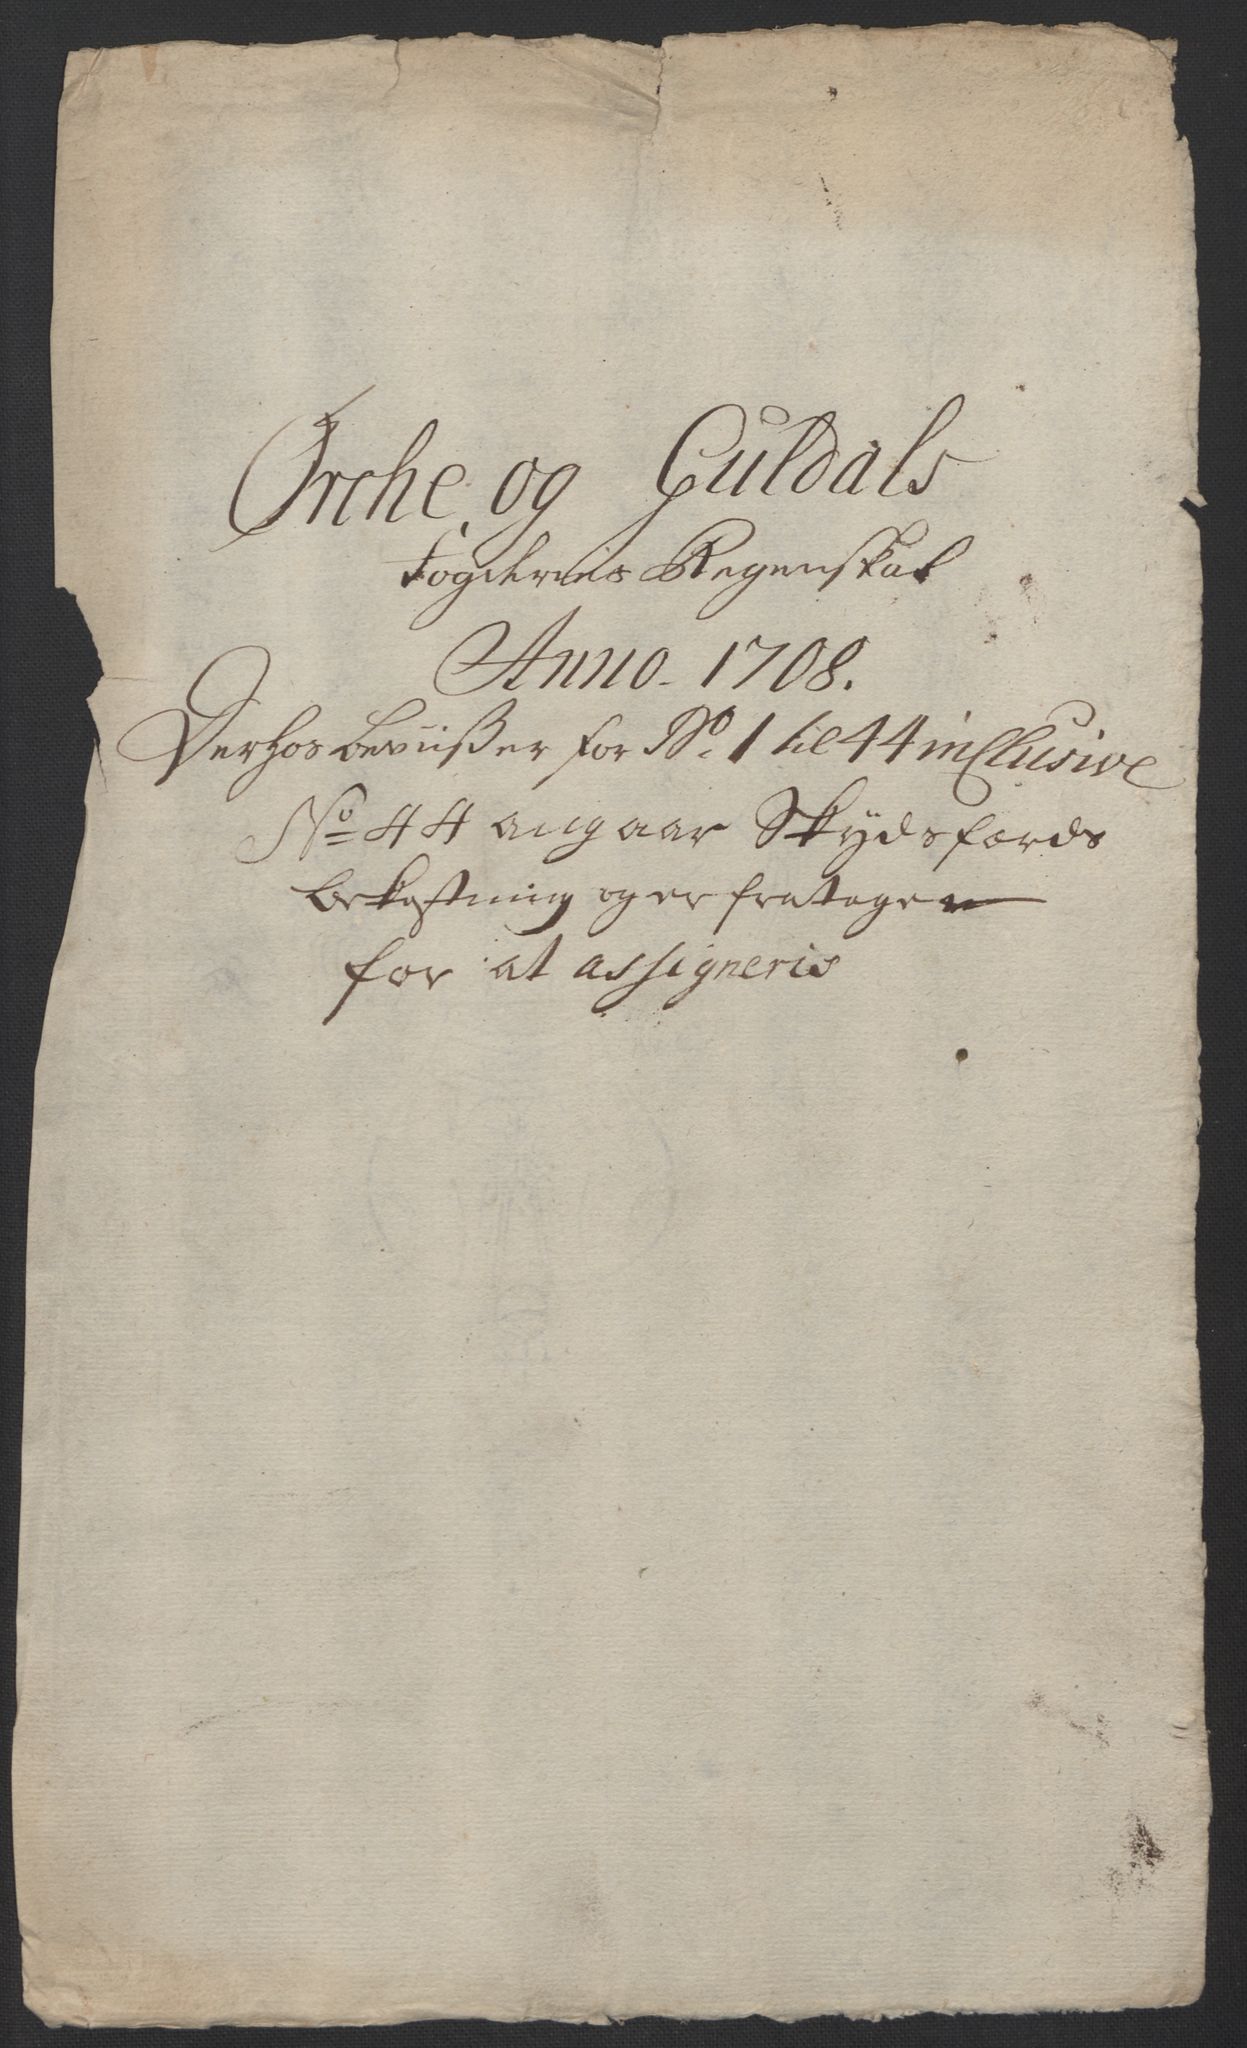 Ørche og Guldals
fogderies Regenskab
Anno 1708.
Derhos beviißer for No. 1 til 44 inclusive
No 44 angaar Skydsfærds
bekostning og er fratagen
for at assigneris